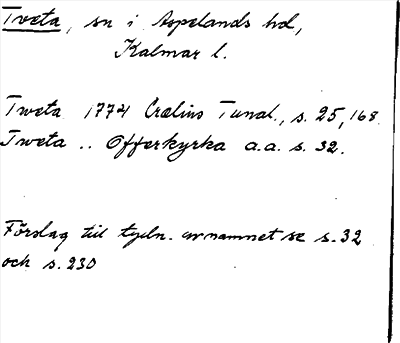 Tveta, sn i Aspelands hd,
Kalmar l.
Tweta 1774 Crælius Tunal., s. 25, 168.
Tweta .. Offerkyrka a.a. s. 32.
Förslag till tydn. av namnet se s. 32
och s. 230